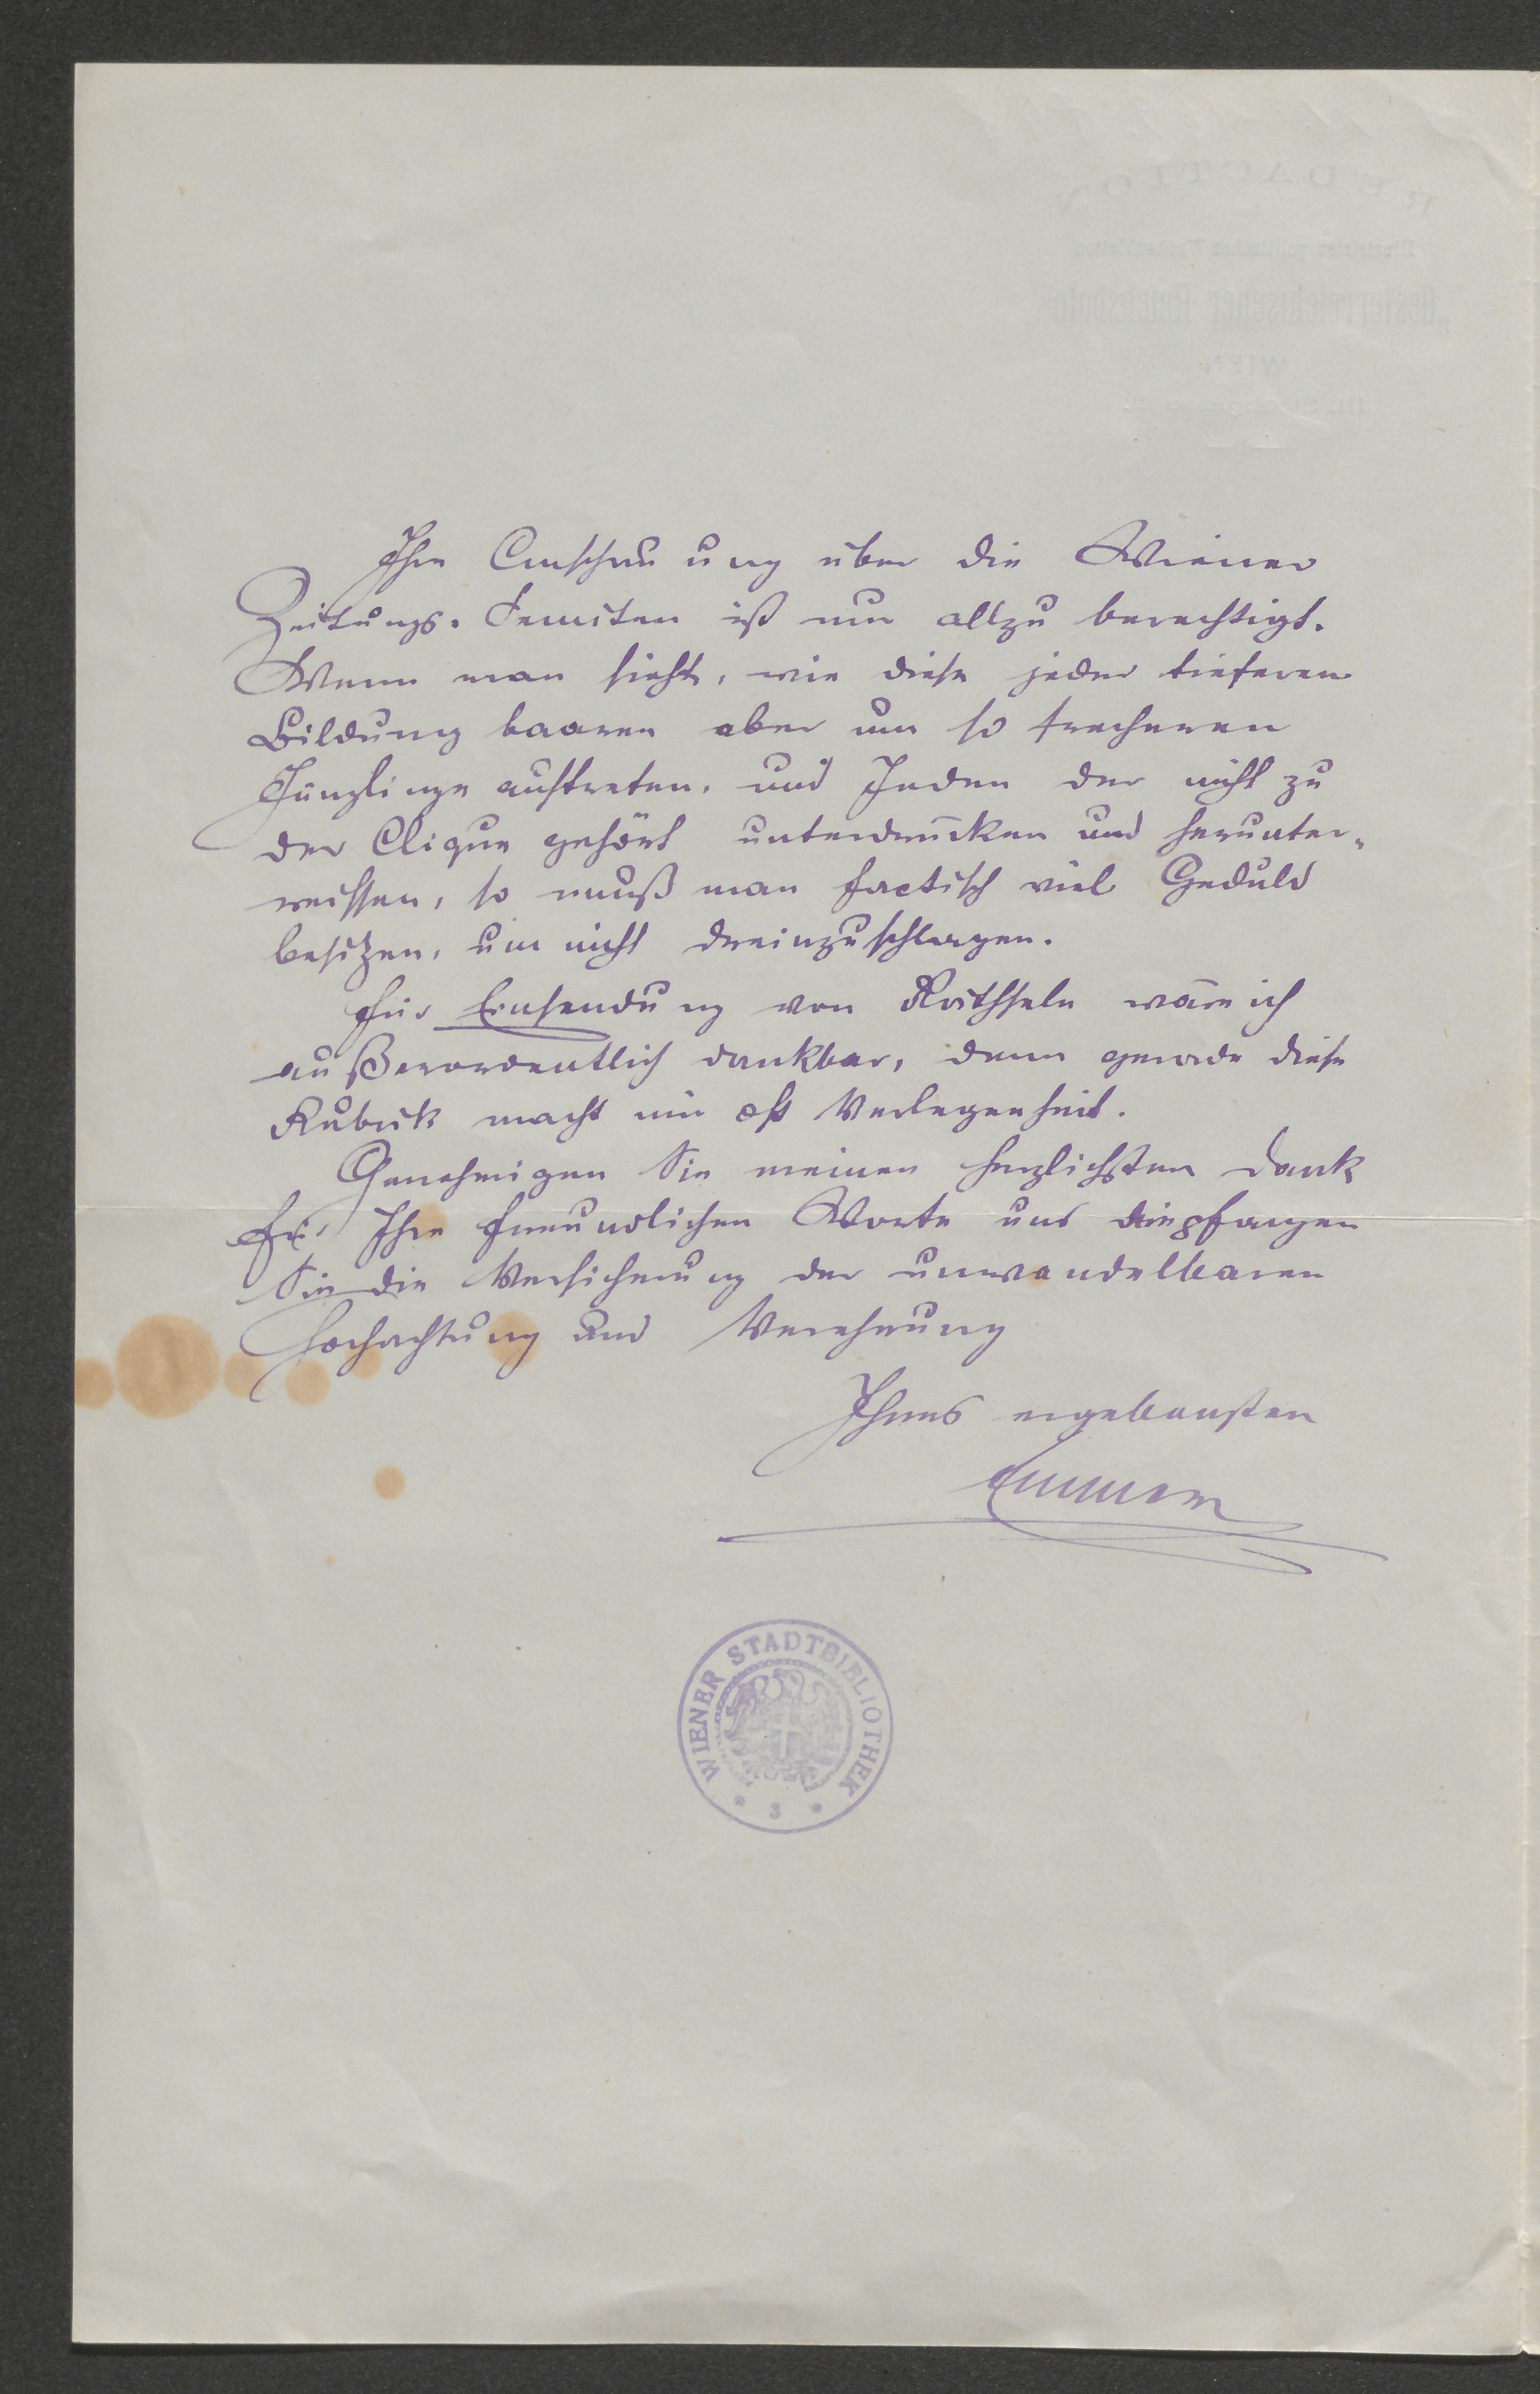 Ihre Anschauung über die Wiener
Zeitungs-Semiten ist nur allzu berechtigt.
Wenn man sieht, wie diese jeder tieferen
Bildung baaren aber um so frecheren
Jünglinge auftreten, und Jeden der nicht zu
der Clique gehört unterdrücken und herunter-
reissen, so muß man factisch viel Geduld
besitzen, um nicht dreinzuschlagen.
Für Einsendung von Räthseln wäre ich
außerordentlich dankbar, denn gerade diese
Rubrik macht mir oft Verlegenheit.
Genehmigen Sie meinen herzlichsten Dank
für Ihre freundlichen Worte und empfangen
Sie die Versicherung der unwandelbaren
Hochachtung und Verehrung
Ihres ergebensten
WIENER STADTBIBLIOTHEK
REDACTION
"Oesterreichischer Reichsbote"
WIEN